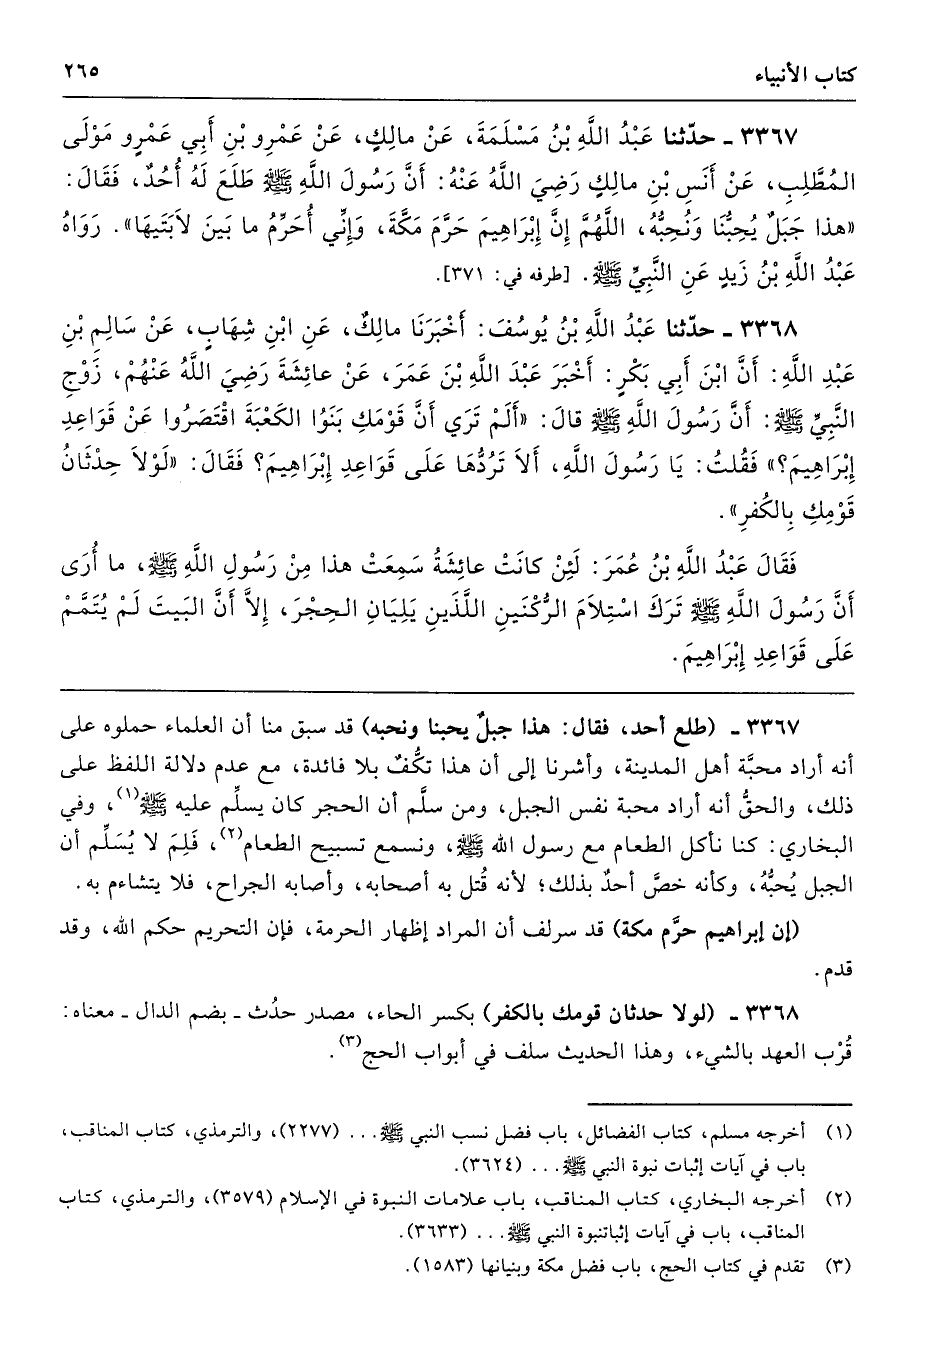 كتاب الأنبياء ٢٦٥
٣٣٦٧ ـ حدّثنا عَبْدُ اللَّهِ بْنُ مَسْلَمَةَ، عَنْ مالِكٍ، عَنْ عَمْرِو بْنِ أَبِي عَمْرٍو مَوْلَى
المُطَّلِبِ، عَنْ أَنَسِ بْنِ مالِكٍ رَضِيَ اللَّهُ عَنْهُ: أَنَّ رَسُولَ اللَّهِ ﷺ طَلَعَ لَهُ أُحُدٌ، فَقَالَ:
«هذا جَبَلٌ يُحِبُّنَا وَنُحِبُّهُ، اللَّهُمَّ إِنَّ إِبْرَاهِيمَ حَرَّمَ مَكَّةَ، وَإِنِّي أُحَرِّمُ ما بَينَ لاَبَتَيهَا». رَوَاهُ
عَبْدُ اللَّهِ بْنُ زَيدٍ عَنِ النَّبِيِّ ﷺ. [طرفه في: ٣٧١].
٣٣٦٨ ـ حدّثنا عَبْدُ اللَّهِ بْنُ يُوسُفَ: أَخْبَرَنَا مالِكٌ، عَنِ ابْنِ شِهَابٍ، عَنْ سَالِمِ بْنِ
عَبْدِ اللَّهِ: أَنَّ ابْنَ أَبِي بَكْرٍ: أَخْبَرَ عَبْدَ اللَّهِ بْنَ عَمَرَ، عَنْ عائِشَةَ رَضِيَ اللَّهُ عَنْهُمْ، زَوْجِ
النَّبِيِّ ﷺ: أَنَّ رَسُولَ اللَّهِ ﷺ قالَ: «أَلَمْ تَرَي أَنَّ قَوْمَكِ بَنَوُا الكَعْبَةَ اقْتَصَرُوا عَنْ قَوَاعِدِ
إِبْرَاهِيمَ؟» فَقُلتُ: يَا رَسُولَ اللَّهِ، أَلاَ تَرُدُّهَا عَلَى قَوَاعِدِ إِبْرَاهِيمَ؟ فَقَالَ: «لَوْلاَ حِدْثَانُ
قَوْمِكِ بِالكُفرِ».
فَقَالَ عَبْدُ اللَّهِ بْنُ عُمَرَ: لَئِنْ كانَتْ عائِشَةُ سَمِعَتْ هذا مِنْ رَسُولِ اللَّهِ ﷺ، ما أُرَى
أَنَّ رَسُولَ اللَّهِ ﷺ تَرَكَ اسْتِلاَمَ الرُّكْنَينِ اللَّذَينِ يَلِيَانِ الحِجْرَ، إِلاَّ أَنَّ البَيتَ لَمْ يُتَمَّمْ
عَلَى قَوَاعِدِ إِبْرَاهِيمَ.
٣٣٦٧ ـ (طلع أحد، فقال: هذا جبلٌ يحبنا ونحبه) قد سبق منا أن العلماء حملوه على
أنه أراد محبَّة أهل المدينة، وأشرنا إلى أن هذا تكُّفٌ بلا فائدة، مع عدم دلالة اللفظ على
ذلك، والحقُّ أنه أراد محبة نفس الجبل، ومن سلَّم أن الحجر كان يسلِّم عليه ﷺ(١)، وفي
البخاري: كنا نأكل الطعام مع رسول الله ﷺ، ونسمع تسبيح الطعام(٢)، فَلِمَ لا يُسَلِّم أن
الجبل يُحبُّهُ، وكأنه خصَّ أحدٌ بذلك؛ لأنه قُتل به أصحابه، وأصابه الجراح، فلا يتشاءم به.
(إن إبراهيم حرَّم مكة) قد سرلف أن المراد إظهار الحرمة، فإن التحريم حكم الله، وقد
قدم.
٣٣٦٨ ـ (لولا حدثان قومك بالكفر) بكسر الحاء، مصدر حدُث ـ بضم الدال ـ معناه:
قُرْب العهد بالشيء، وهذا الحديث سلف في أبواب الحج(٣).
(١) أخرجه مسلم، كتاب الفضائل، باب فضل نسب النبي ﷺ... (٢٢٧٧)، والترمذي، كتاب المناقب،
باب في آيات إثبات نبوة النبي ﷺ... (٣٦٢٤).
(٢) أخرجه البخاري، كتاب المناقب، باب علامات النبوة في الإسلام (٣٥٧٩)، والترمذي، كتاب
المناقب، باب في آيات إثباتنبوة النبي ﷺ... (٣٦٣٣).
(٣) تقدم في كتاب الحج، باب فضل مكة وبنيانها (١٥٨٣).